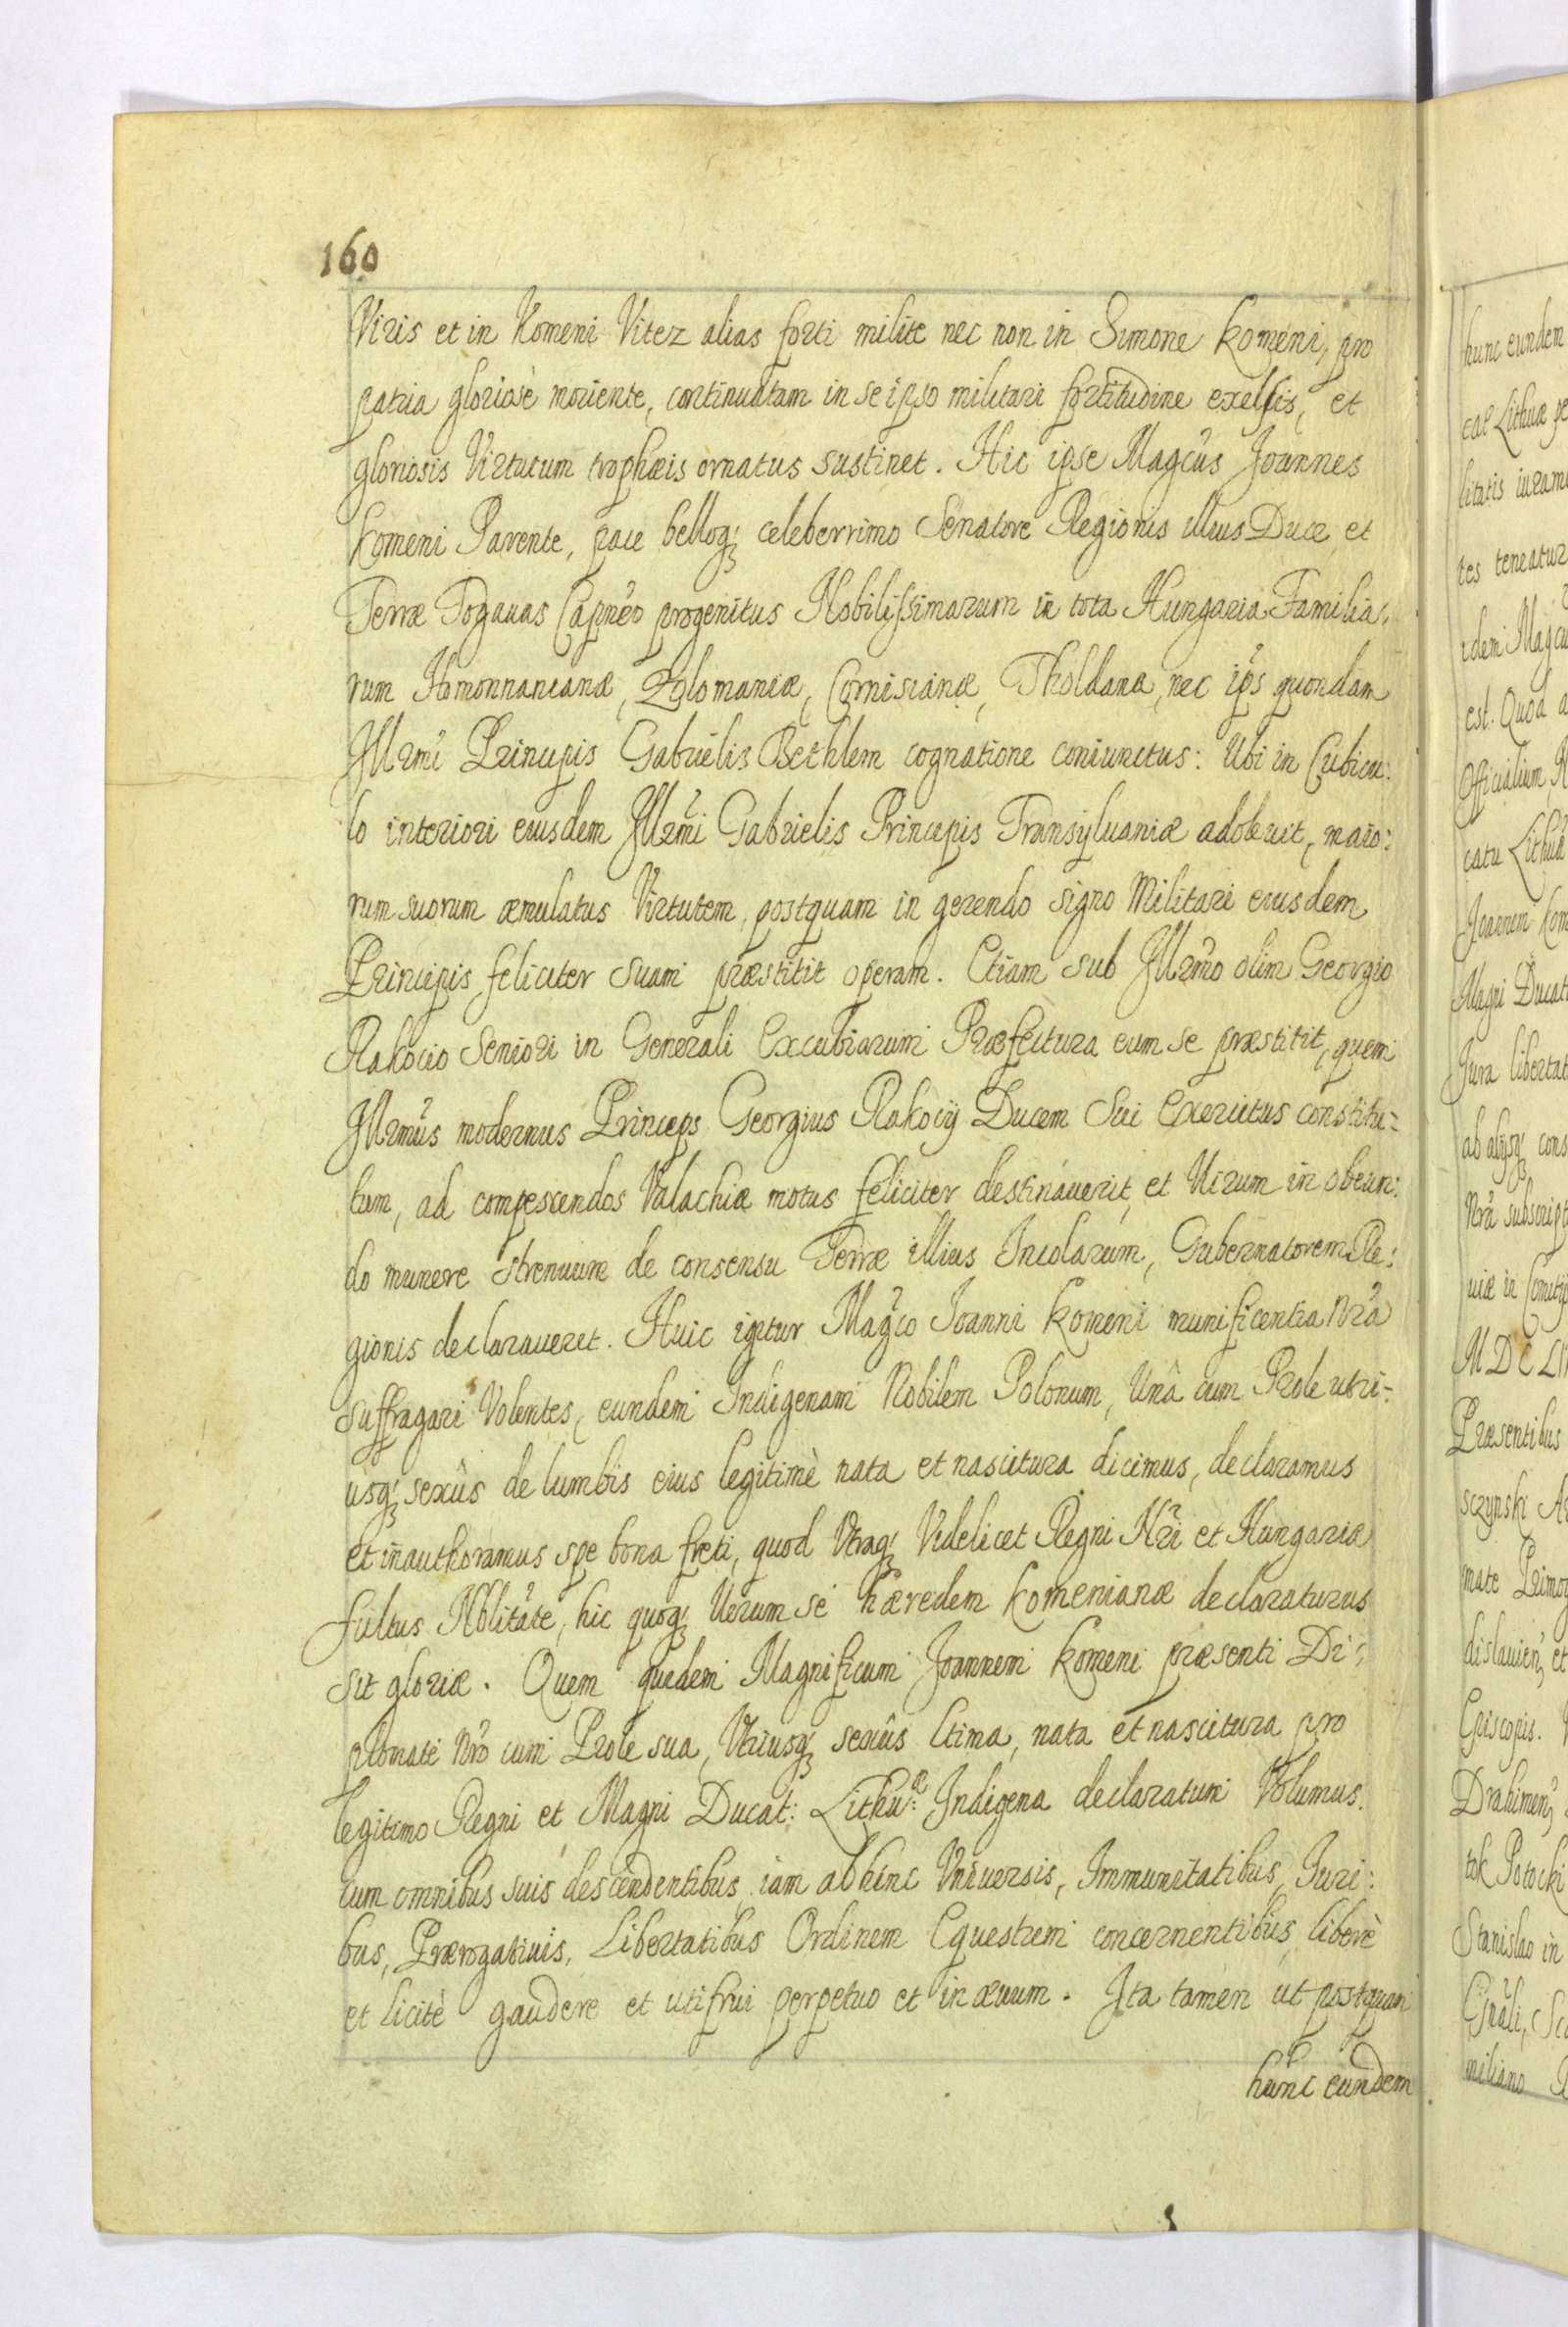 160
Viris et in Komeni Vitez alias forti milite nec non in Simone Komeni, pro
patria gloriosè moriente, continuatam in se ipso militari fortitudine exelsis, et
gloriosis Virtutum trophæis ornatus sustinet. Hic ipse Magcus Joannes
Komeni Parente, pace belloq; celeberrimo Senatore Regionis illius Duce, et
Terræ Fogauas Capneo progenitus Nobilissimarum in tota Hungaria Familia,
rum Homonnanianæ, Zolomaniæ, Cornisianæ, Tholdana, nec ips quondam
Illrmi Principis Gabrielis Bethlem cognatione coniunctus: Ubi in Cubicu:
lo interiori eiusdem Illrmi Gabrielis Principis Transyluaniæ adoleuit, maio:
rum suorum æmulatus Virtutem, postquam in gerendo signo Militari eiusdem
Principis feliciter suam præstitit operam. Etiam sub Illrmo olim Georgio
Rakocio Seniori in Generali Excubiarum Præfectura eum se præstitit, quem
Illrmus modernus Princeps Georgius Rakocij Ducem Sui Exercitus constitu=
tum, ad compescendos Valachiæ motus feliciter destinauerit, et Uirum in obeun:
do munere strenuum de consensu Terræ illius Incolarum, Gubernatorem Re:
gionis declarauerit. Huic igitur Magco Joanni Komeni munificentia Nra
suffragari Volentes, eundem Indigenam Nobilem Polonum, Unâ cum Prole utri=
usq; sexûs de lumbis eius legitimè nata et nascitura dicimus, declaramus
et inauthoramus spe bona freti, quod Utraq; Videlicet Regni Nri et Hungariæ
fultus Nblitate, hic quoq; Uerum se hæredem Komenianæ declaraturus
sit gloriæ. Quem quidem Magnificum Joannem Komeni præsenti Di:
plomate Nro cum Prole sua, Utriusq; sexûs ltima, nata et nascitura pro
legitimo Regni et Magni Ducat: Lithuæ: Indigena declaratum Volumus.
cum omnibus suis descendentibus, iam abhinc Vniuersis, Immunitatibus, Juri:
bus, Prærogatiuis, Libertatibus Ordinem Equestrem concernentibus, liberè
et licitè gaudere et uti frui perpetuo et in æuum. Ita tamen ut postquam
hunc eundem
hunc eundem
litatis iuram
tes teneatur
idem Magcu
est. Quod a
Officialium
catu Lithuæ
Joannem Kom
Magni Ducat
Jura libertat
ab alijsq; cons
Nra subscript
uiæ in Comitijs
Præsentibus
sczynski
mate Primog
Episcopis.
tok Potocki
Stanislao in
miliano